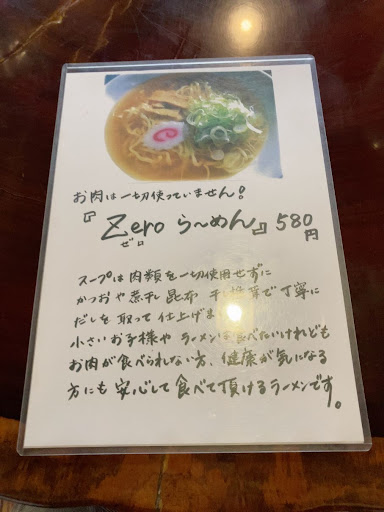 お肉は一切使っていません!
『Zero らーめん』580円
ゼロ
スープは肉類を一切使用せずに
かつおや煮干し昆布 干 野菜で丁寧に
だしを取って仕上げま
小さいお子様や ラーメン 食べたいけれども
お肉が食べられない方、健康が気になる
方にも安心して食べて頂けるラーメンです。